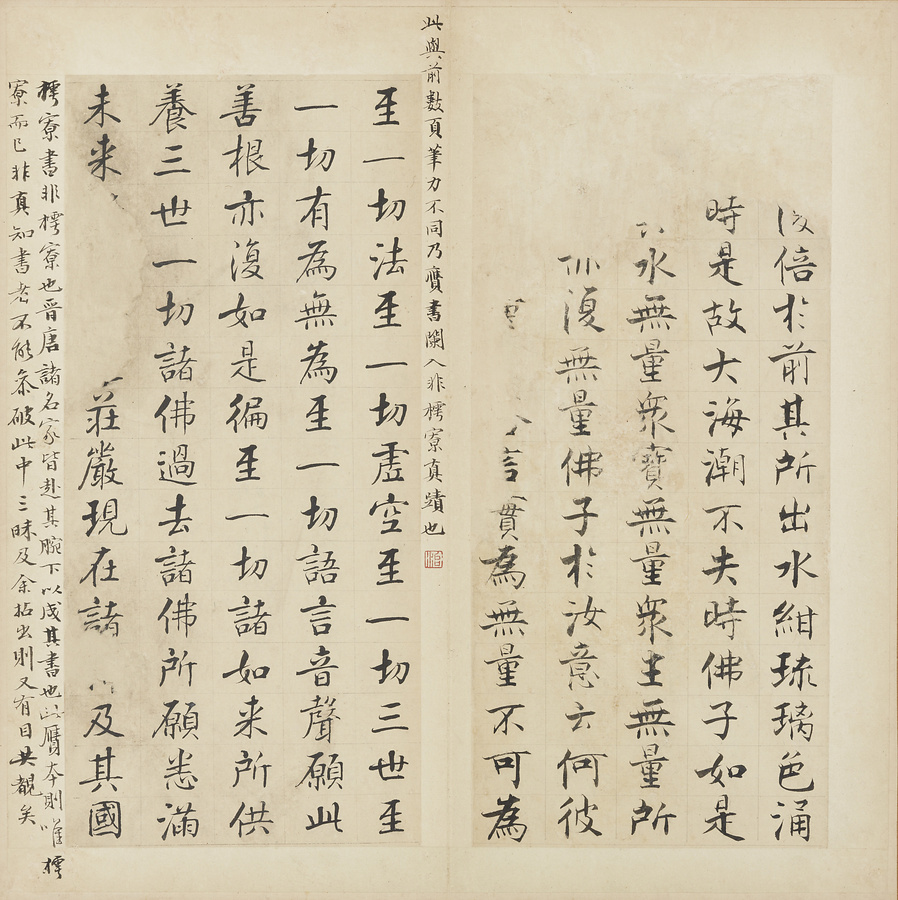 倍於前其所出水紺琉璃色涌
時是故大海潮不失時佛子如是
水無量衆寶無量衆生無量所
復無量佛子於汝意云何彼
言實為無量不可為
此與前數頁筆力不同乃贗書闌入非樗寮真蹟也
至一切法至一切虛空至一切三世至
一切有為無為至一切語言音聲願此
善根亦復如是徧至一切諸如来所供
養三世一切諸佛過去諸佛所願悉滿
未来 莊嚴現在諸 及其國
樗寮書非樗寮也晋唐諸名家皆赴其腕下以成其書也此贗本則唯樗
寮而已非真知書者不能参破此中三昧及余拈出則又有目共覩矣